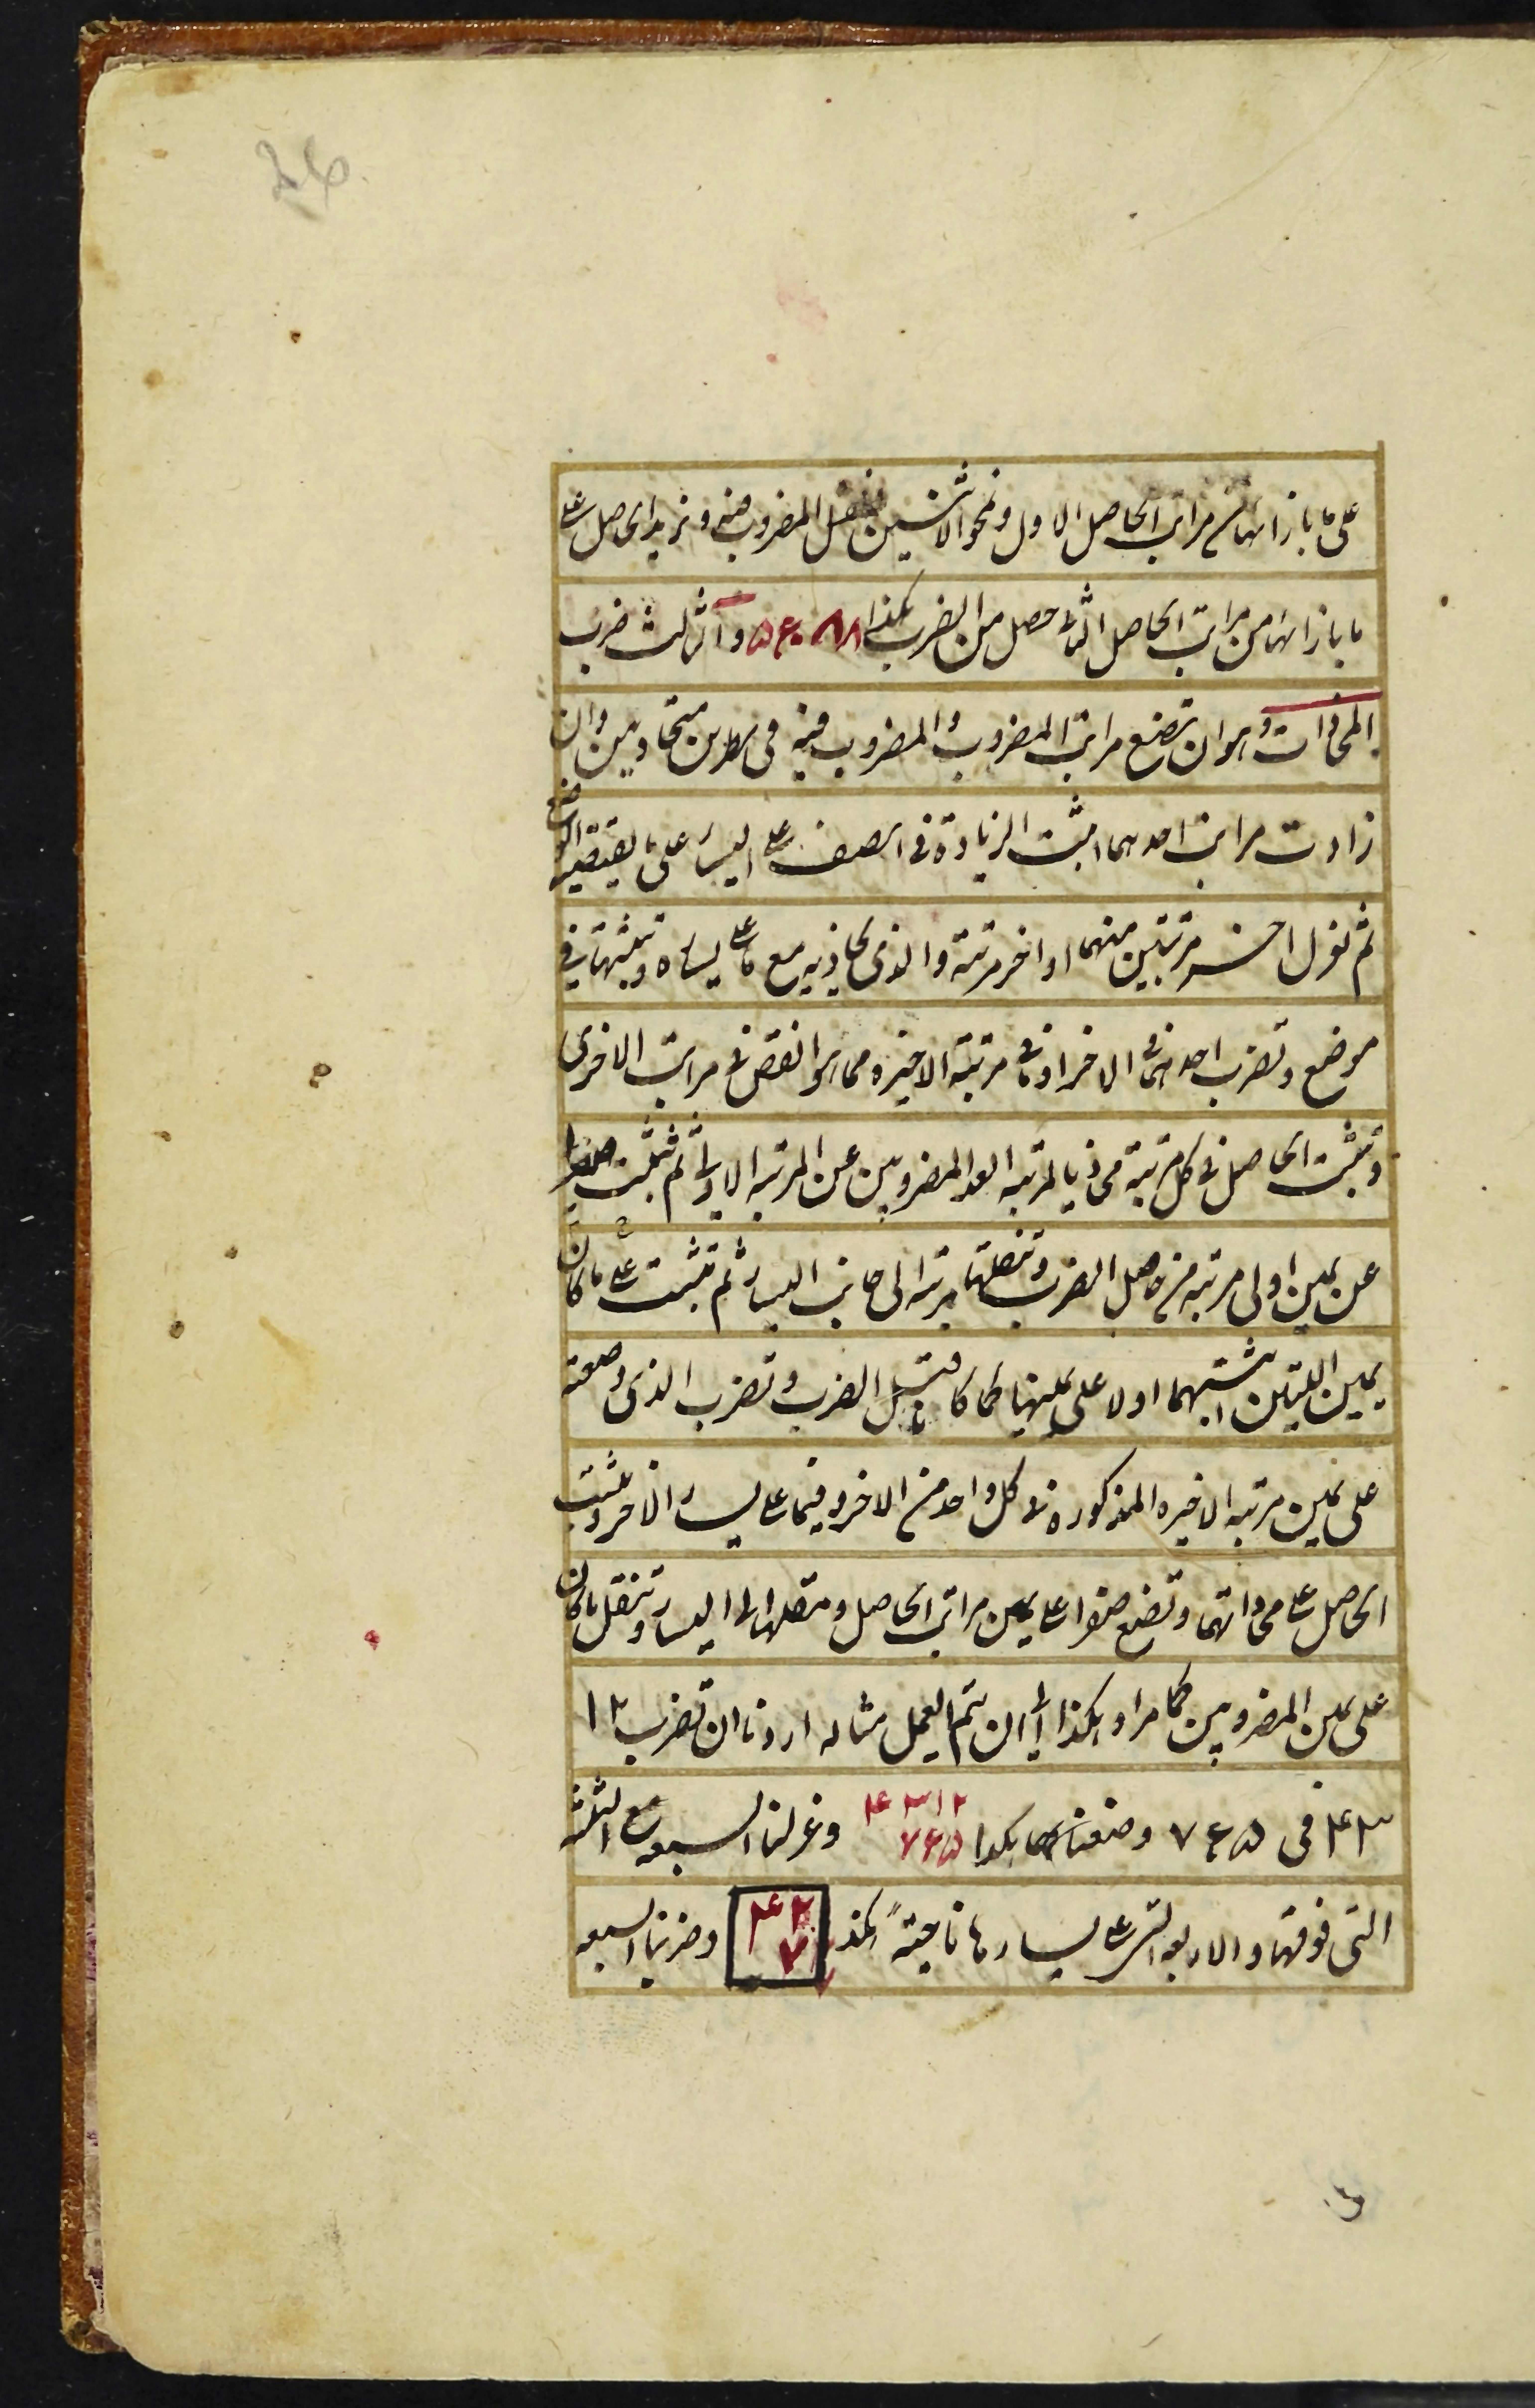 على ما بازائها من مراتب الحاصل الاول ونمحو الاثنين فنقل المضروب فيه ونزيد الحاصل على
ما بازائها من مراتب الحاصل الثانى حصل من الضرب هكذا ٥٤٠٨٨ والثالث ضرب
المحاذات وهو ان تضع مراتب المضروب والمضروب فيه فى سطرين متحاذيين وان
زادت مراتب احدهما اثبت الزيادة فى الصف على اليسار على ما يقتضيه الوضع
ثم نعزل اخر مرتبتين منهما او اخر مرتبة والذى يحاذيه مع ما على يساره وتثبتها فى
موضع وتضرب احدهما فى الاخر او فى مرتبة الاخيره مما هو انقص فى مراتب الاخرى
وتثبت الحاصل فى كل مرتبة محاذيا لمرتبة ابعد المضروبين عن المرتبه الاولى ثم تثبت صفرا
عن يمين اولى مرتبه من حاصل الضرب وتنقلها مرتبه الى جانب اليسار ثم تثبت ما كان على
يمين اللتين اثبتهما اولا على يمينهما كما كان قبل الضرب وتضرب الذى وضعته
على يمين مرتبه الاخيره المذكوره فى كل واحد من الاخر وفيما على يسار الاخر وتثبت
الحاصل على محاذاتهما وتضع صفرا على يمين مراتب الحاصل وتنقلها الى اليسار وتنقل ما كان
على يمين المضروبين كما مر وهكذا الى ان يتم العمل مثاله اردنا ان نضرب ١٢
٤٣ فى ٧٦٥ وضعناهما هكذا ٤٣١٢ ٧٦٥ وعزلنا السبعه مع الثلثه
التى فوقها والاربعه التى على يسارها ناحيةً هكذا ٤٣ ٧ وضربنا السبعه